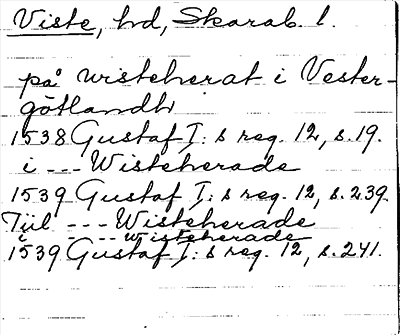 Viste, hd, Skarab. l.
på wisteherat i Vester-
götlandh
1538 Gustaf I: s reg. 12, s. 19.
i --- Wisteherade
1539 Gustaf I: s reg. 12, s. 239.
Tiil --- Wisteherade
i --- Wisteherade
1539 Gustaf I: s reg. 12, s. 241.